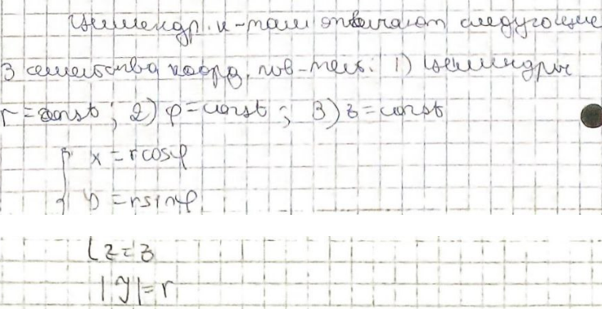 Цилиндр. к-там отвечают следующие
3 семейства коорд. пов-тей: 1) цилиндры
r = const; 2) φ = const; 3) z = const
{ x = rcosφ
y = rsinφ
z = z
|J| = r